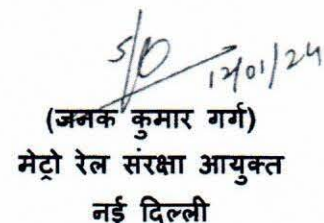 12/01/24
(जनक कुमार गर्ग)
मेट्रो रेल संरक्षा आयुक्त
नई दिल्ली